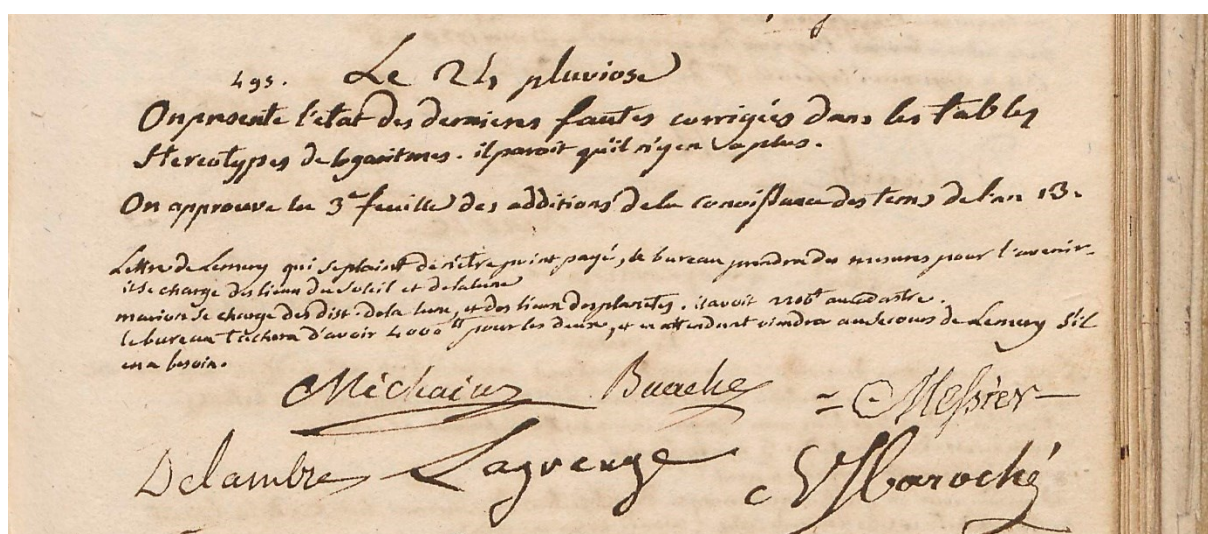 495. Le 24 pluviose
On presente l'etat des dernieres fautes corrigées dans les tables
Stereotypes de logaritmes. il paroit qu'il n'y en a plus.
On approuve la 3e feuille des additions de la conoissance des tems de l'an 13.
Lettre de Lemery qui se plaint de n'etre point payé, le bureau prendra des mesures pour l'avenir.
il se charge des lieux du Soleil et de la lune
marion se charge des dist. de la lune, et des lieux des planetes. il avoit au cadastre.
le bureau tachera d'avoir 4000 tt pour les deux, et en attendant viendra au secours de Lemery s'il
en a besoin.
Méchain Buache = Messier
Delambre Lagrange